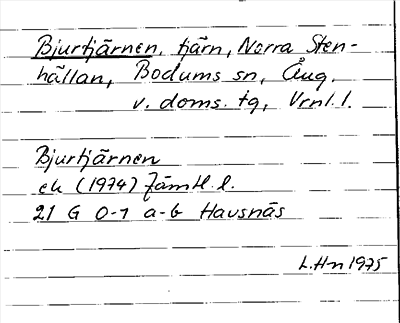 Bjurtjärnen, tjärn, Norra Sten-
hällan, Bodums sn, Ång.
v. doms. tg, Vrnl. l.
Bjurtjärnen
ek (1974) Jämtl. l.
21 G 0-1 a-b Havsnäs
L.Hn 1975